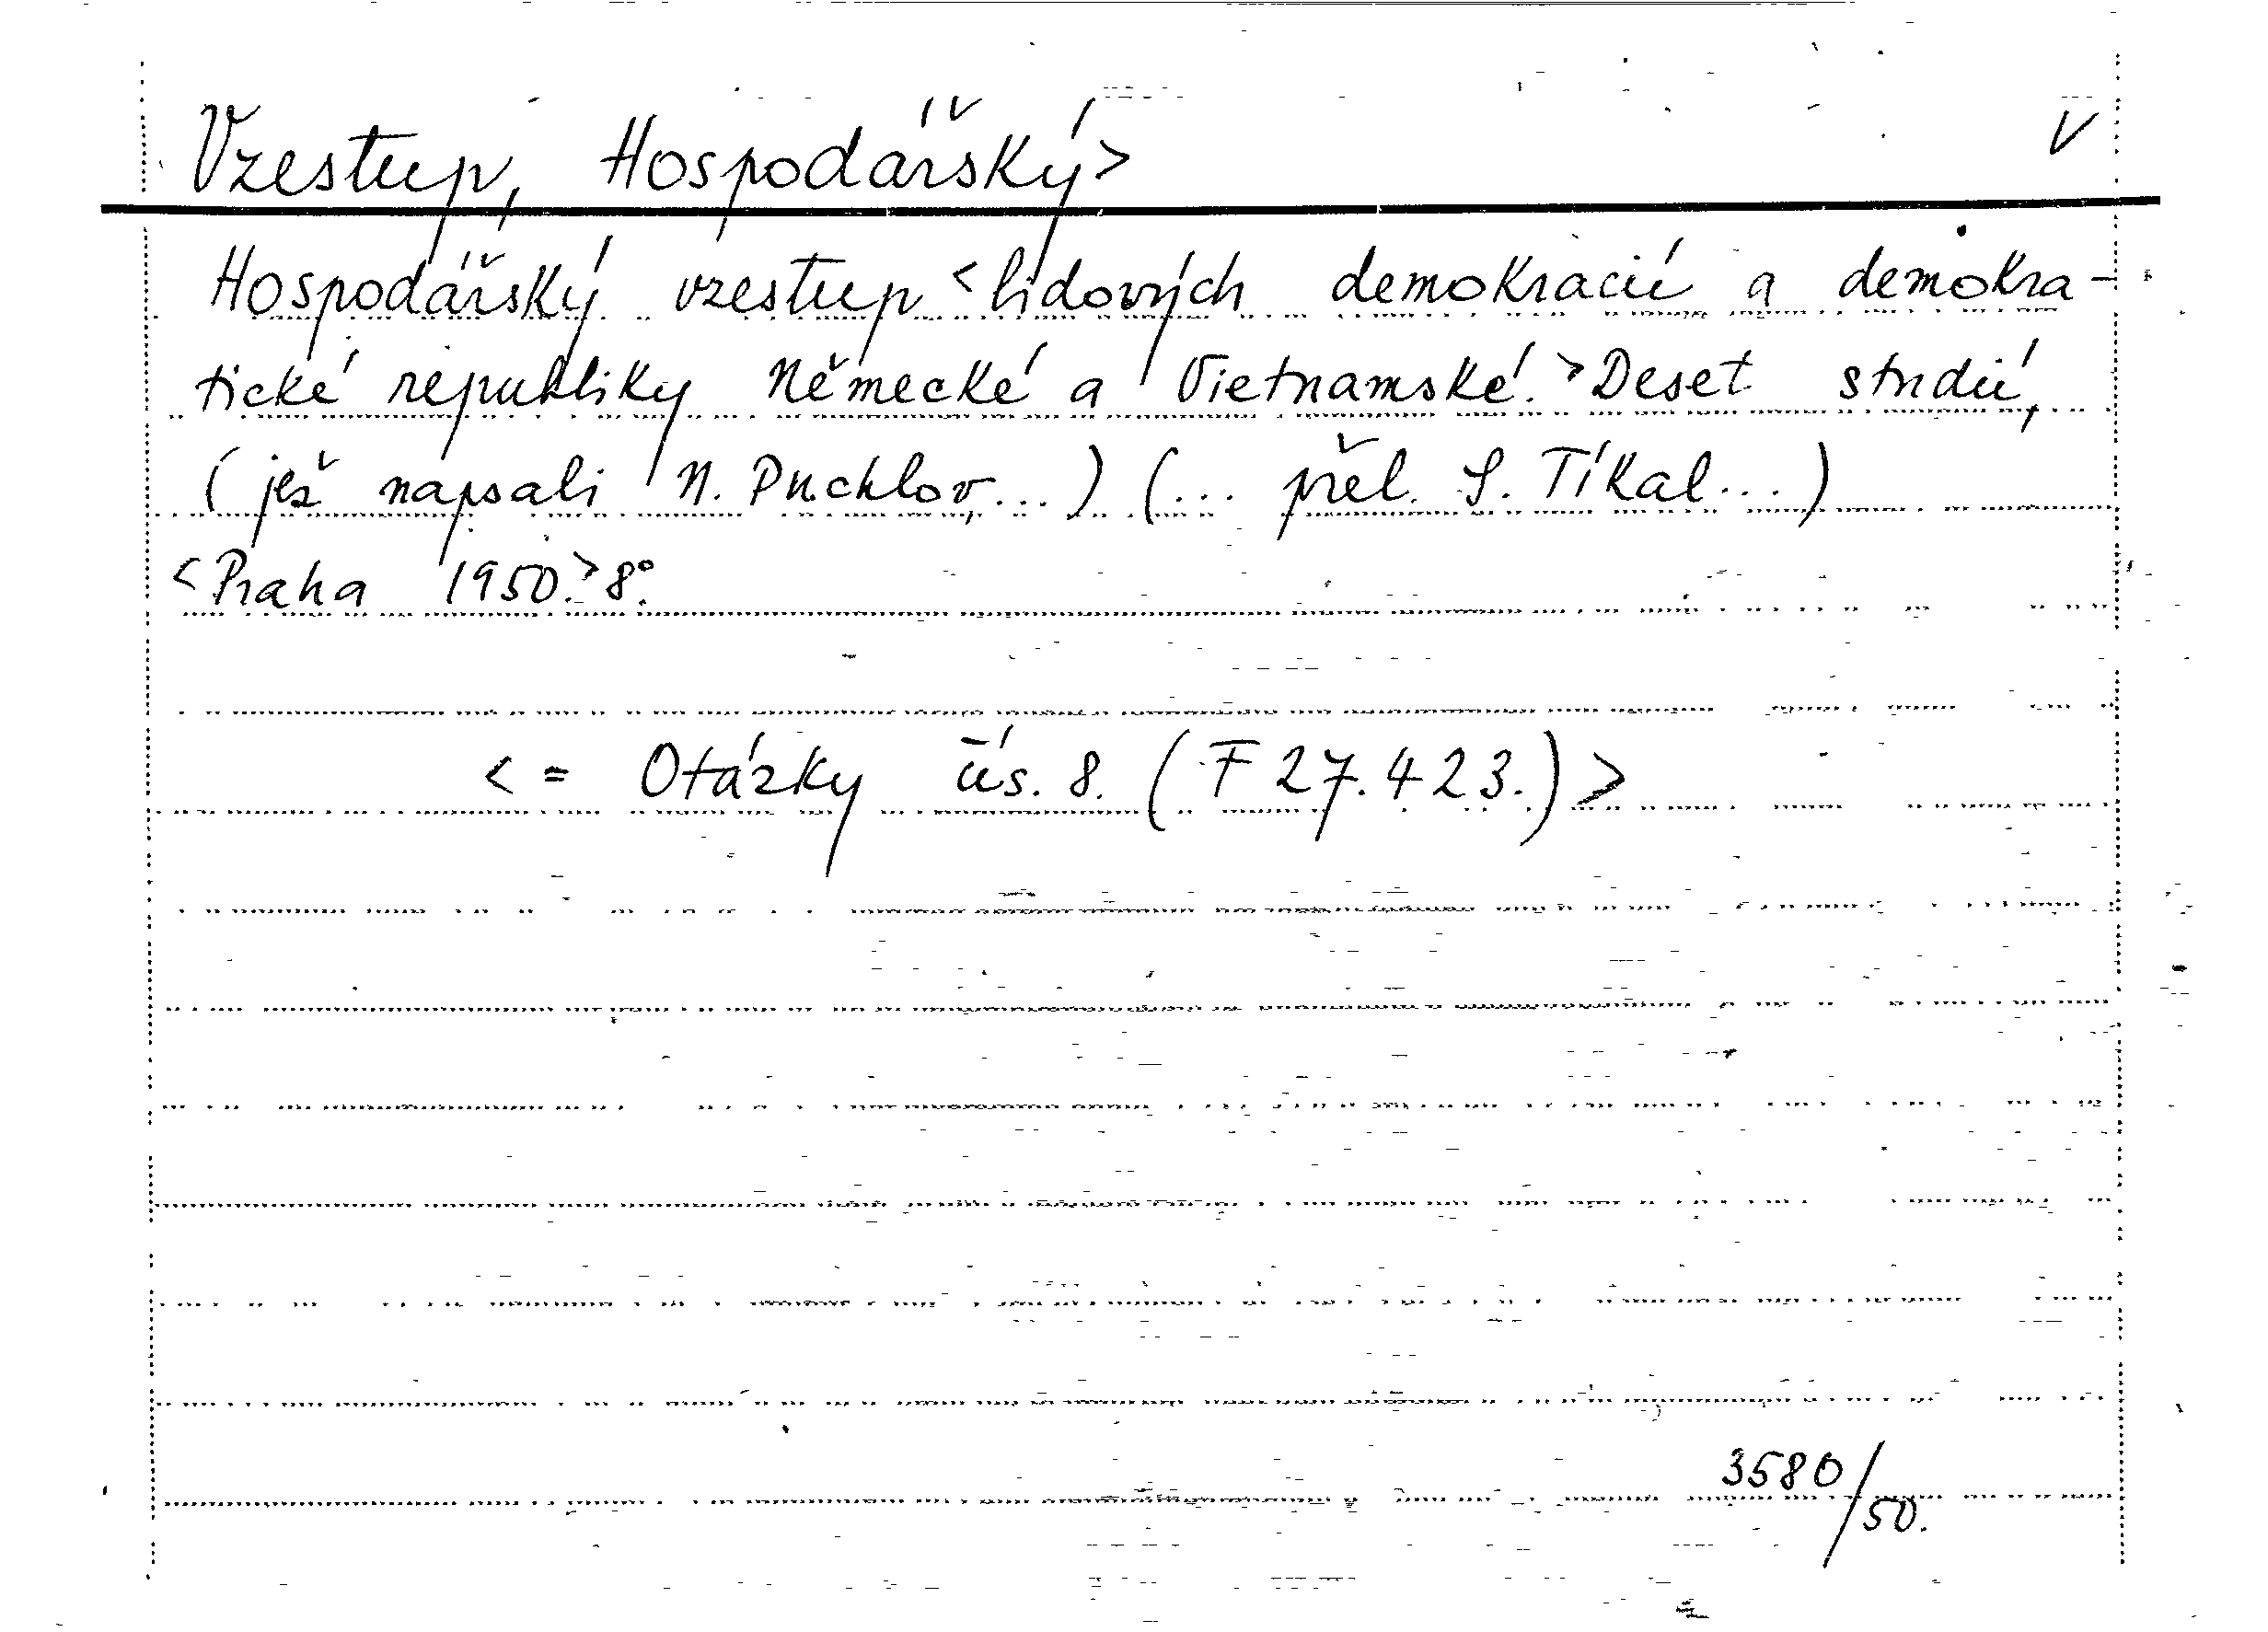 Vzestup, Hospodářský> V
Hospodářský vzestup <lidových demokracií a demokra-
tické republiky Německé a Vietnamské.> Deset studií,
(jež napsali N. Puchlov,...) (... přel. S. Tíkal...)
<Praha 1950.> 8°.
<= Otázky čís. 8. (F 27.423.)>
3580/50.